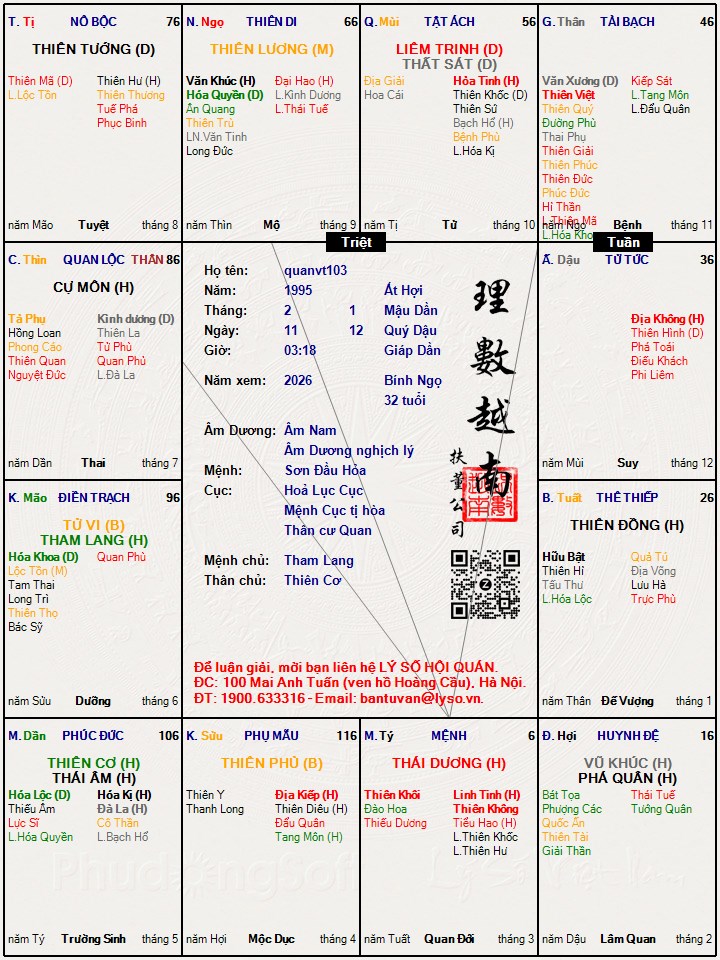 T. Tị NÔ BỘC 76
THIÊN TƯỚNG (D)
Thiên Mã (D) Thiên Hư (H)
L.Lộc Tồn Thiên Thương
Tuế Phá
Phục Binh
năm Mão Tuyệt tháng 8
N. Ngọ THIÊN DI 66
THIÊN LƯƠNG (M)
Văn Khúc (H) Đại Hao (H)
Hóa Quyền (D) L.Kình Dương
Ân Quang L.Thái Tuế
Thiên Trù
LN.Văn Tinh
Long Đức
năm Thìn Mộ tháng 9
Q. Mùi TẬT ÁCH 56
LIÊM TRINH (D)
THẤT SÁT (D)
Địa Giải Hỏa Tinh (H)
Hoa Cái Thiên Khốc (D)
Thiên Sứ
Bạch Hổ (H)
Bệnh Phù
L.Hóa Kị
năm Tị Tử tháng 10
G. Thân TÀI BẠCH 46
Văn Xương (D) Kiếp Sát
Thiên Việt L.Tang Môn
Thiên Quý L.Đẩu Quân
Đường Phù
Thai Phụ
Thiên Giải
Thiên Phúc
Thiên Đức
Phúc Đức
Hỉ Thần
L.Thiên Mã
L.Hóa Kho
năm Ngọ Bệnh tháng 11
Triệt
Tuần
C. Thìn QUAN LỘC THÂN 86
CỰ MÔN (H)
Tả Phụ Kình dương (D)
Hồng Loan Thiên La
Phong Cáo Tử Phù
Thiên Quan Quan Phủ
Nguyệt Đức L.Đà La
năm Dần Thai tháng 7
Họ tên: quanvt103
Năm: 1995 Ất Hợi
Tháng: 2 1 Mậu Dần
Ngày: 11 12 Quý Dậu
Giờ: 03:18 Giáp Dần
Năm xem: 2026 Bính Ngọ
32 tuổi
Âm Dương: Âm Nam
Âm Dương nghịch lý
Mệnh: Sơn Đầu Hỏa
Cục: Hoả Lục Cục
Mệnh Cục tị hòa
Thân cư Quan
Mệnh chủ: Tham Lang
Thân chủ: Thiên Cơ
理數越南
扶董公司
Để luận giải, mời bạn liên hệ LÝ SỐ HỘI QUÁN.
ĐC: 100 Mai Anh Tuấn (ven hồ Hoàng Cầu), Hà Nội.
ĐT: 1900.633316 - Email: bantuvan@lyso.vn.
Ấ. Dậu TỬ TỨC 36
Địa Không (H)
Thiên Hình (D)
Phá Toái
Điếu Khách
Phi Liêm
năm Mùi Suy tháng 12
K. Mão ĐIỀN TRẠCH 96
TỬ VI (B)
THAM LANG (H)
Hóa Khoa (D) Quan Phù
Lộc Tồn (M)
Tam Thai
Long Trì
Thiên Thọ
Bác Sỹ
năm Sửu Dưỡng tháng 6
B. Tuất THÊ THIẾP 26
THIÊN ĐỒNG (H)
Hữu Bật Quả Tú
Thiên Hỉ Địa Võng
Tấu Thư Lưu Hà
L.Hóa Lộc Trực Phù
năm Thân Đế Vượng tháng 1
M. Dần PHÚC ĐỨC 106
THIÊN CƠ (H)
THÁI ÂM (H)
Hóa Lộc (D) Hóa Kị (H)
Thiếu Âm Đà La (H)
Lực Sĩ Cô Thần
L.Hóa Quyền L.Bạch Hổ
năm Tý Trường Sinh tháng 5
K. Sửu PHỤ MẪU 116
THIÊN PHỦ (B)
Thiên Y Địa Kiếp (H)
Thanh Long Thiên Diêu (H)
Đẩu Quân
Tang Môn (H)
năm Hợi Mộc Dục tháng 4
M. Tý MỆNH 6
THÁI DƯƠNG (H)
Thiên Khôi Linh Tinh (H)
Đào Hoa Thiên Không
Thiếu Dương Tiểu Hao (H)
L.Thiên Khốc
L.Thiên Hư
năm Tuất Quan Đới tháng 3
Đ. Hợi HUYNH ĐỆ 16
VŨ KHÚC (H)
PHÁ QUÂN (H)
Bát Tọa Thái Tuế
Phượng Các Tướng Quân
Quốc Ấn
Thiên Tài
Giải Thần
năm Dậu Lâm Quan tháng 2